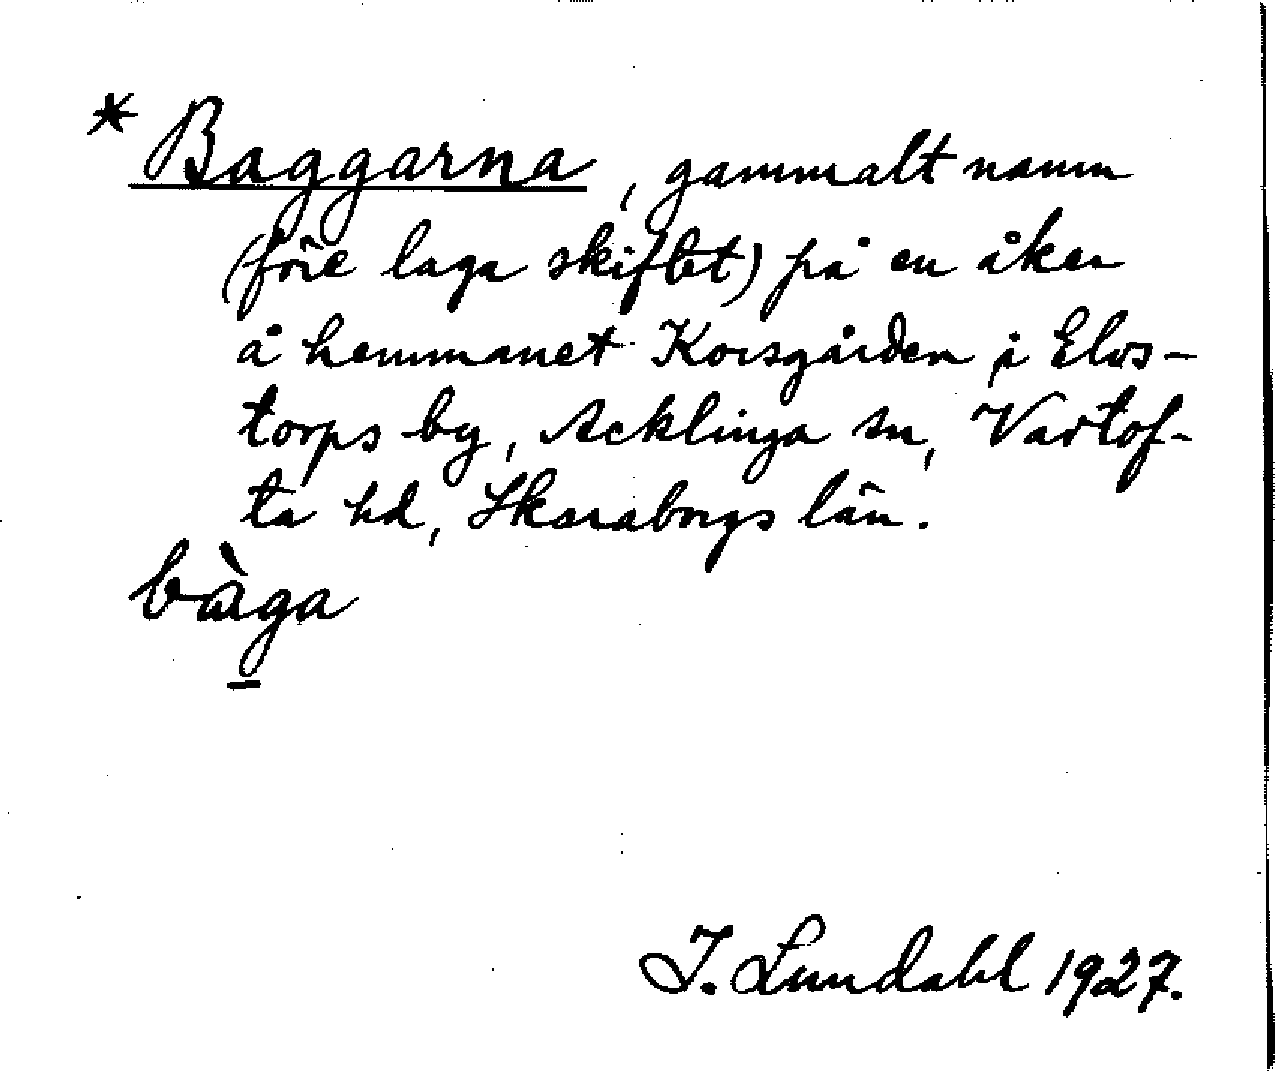 * Baggarna, gammalt namn
(före laga skiftet) på en åker
å hemmanet Korsgården i Elvs-
torps by, Acklinga sn, Vartof-
ta hd, Skaraborgs län.
bàga
I. Lundahl 1927.